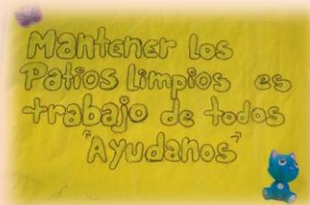 Mantener los
Patios limpios es
trabajo de todos
"Ayudanos"